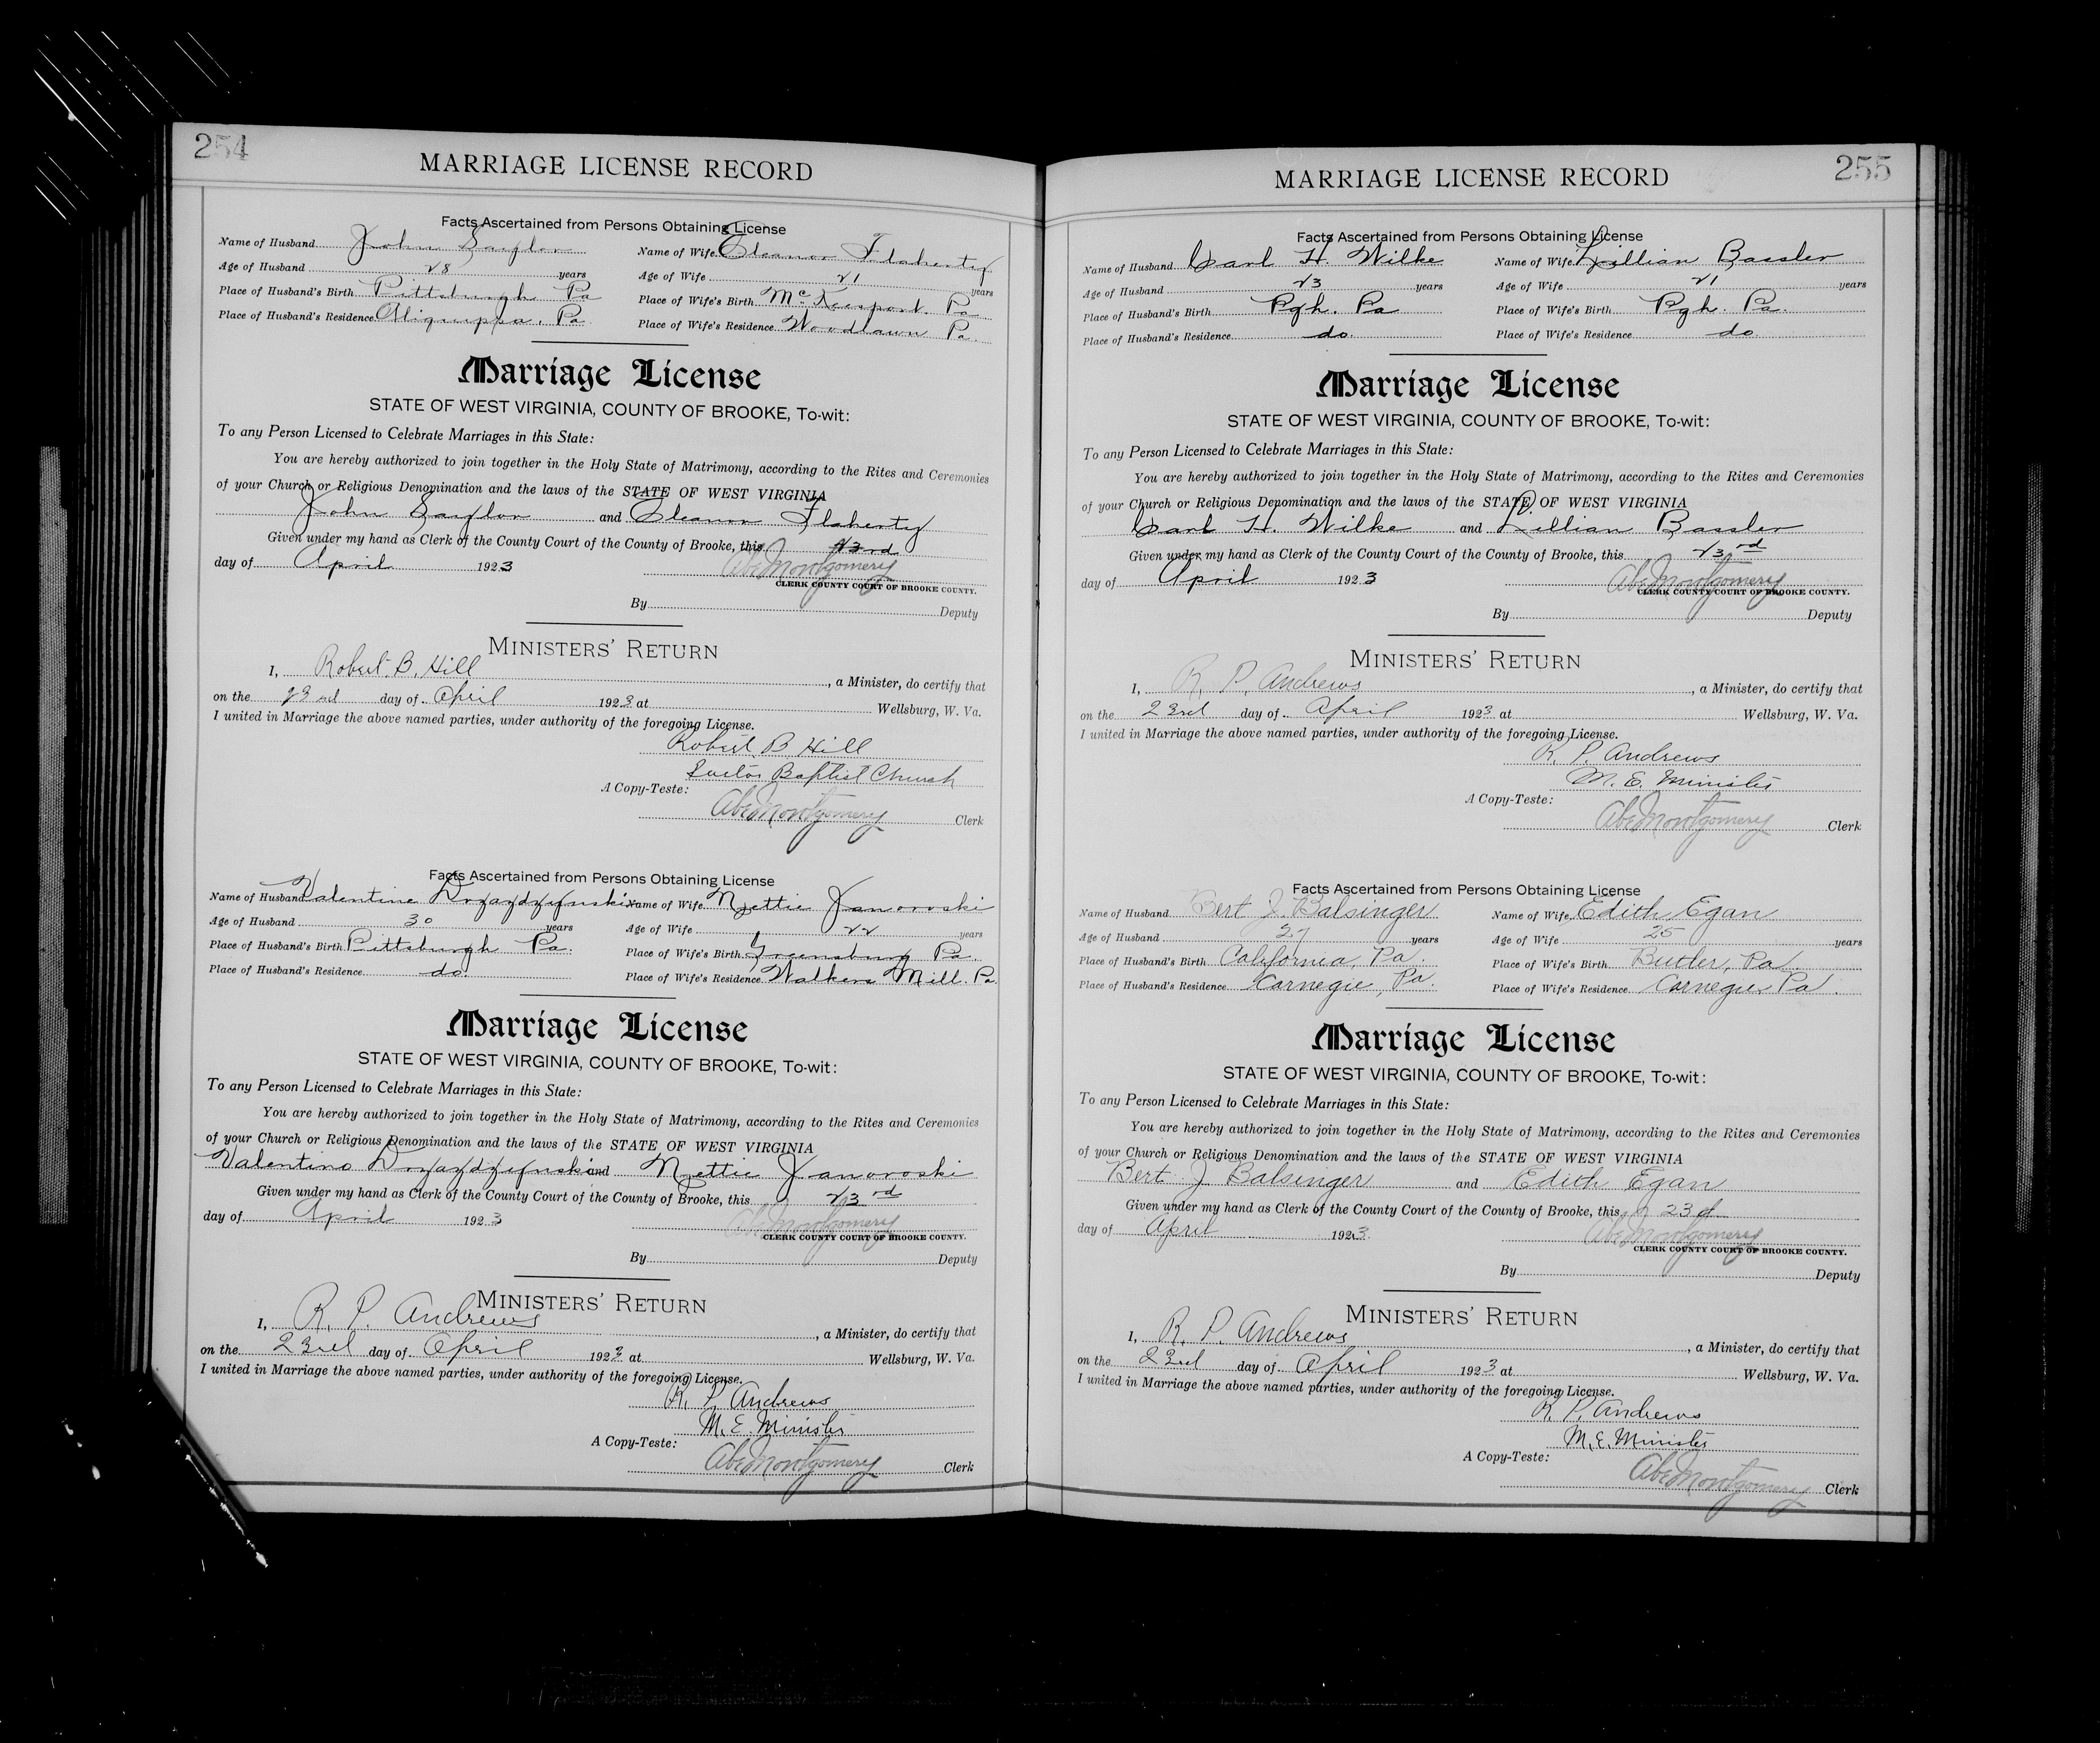 254
MARRIAGE LICENSE RECORD
Facts Ascertained from Persons Obtaining License
Name of Husband John Saylor Name of Wife Eleanor Flaherty
Age of Husband 28 years Age of Wife 21 years
Place of Husband's Birth Pittsburgh Pa Place of Wife's Birth McKeesport. Pa
Place of Husband's Residence Aliquippa. Pa. Place of Wife's Residence Woodlawn Pa.
Marriage License
STATE OF WEST VIRGINIA, COUNTY OF BROOKE, To-wit:
To any Person Licensed to Celebrate Marriages in this State:
You are hereby authorized to join together in the Holy State of Matrimony, according to the Rites and Ceremonies
of your Church or Religious Denomination and the laws of the STATE OF WEST VIRGINIA
John Saylor and Eleanor Flaherty
Given under my hand as Clerk of the County Court of the County of Brooke, this 23rd
day of April 1923 Abe Montgomery
CLERK COUNTY COURT OF BROOKE COUNTY.
By Deputy
MINISTERS' RETURN
I, Robert B. Hill, a Minister, do certify that
on the 23rd day of April 1923 at Wellsburg, W. Va.
I united in Marriage the above named parties, under authority of the foregoing License.
Robert B. Hill
Baptist Church
A Copy-Teste:
Abe Montgomery Clerk
Facts Ascertained from Persons Obtaining License
Name of Husband Valentine Drzazdzynski Name of Wife Nettie Janoroski
Age of Husband 30 years Age of Wife 22 years
Place of Husband's Birth Pittsburgh Pa. Place of Wife's Birth Greensburg Pa.
Place of Husband's Residence do. Place of Wife's Residence Walkers Mill. Pa.
Marriage License
STATE OF WEST VIRGINIA, COUNTY OF BROOKE, To-wit:
To any Person Licensed to Celebrate Marriages in this State:
You are hereby authorized to join together in the Holy State of Matrimony, according to the Rites and Ceremonies
of your Church or Religious Denomination and the laws of the STATE OF WEST VIRGINIA
Valentino Drzazdzynski and Nettie Janoroski
Given under my hand as Clerk of the County Court of the County of Brooke, this 23rd
day of April 1923 Abe Montgomery
CLERK COUNTY COURT OF BROOKE COUNTY.
By Deputy
MINISTERS' RETURN
I, R. P. Andrews, a Minister, do certify that
on the 23rd day of April 1923 at Wellsburg, W. Va.
I united in Marriage the above named parties, under authority of the foregoing License.
R. P. Andrews
M. E. Minister
A Copy-Teste:
Abe Montgomery Clerk
255
MARRIAGE LICENSE RECORD
Facts Ascertained from Persons Obtaining License
Name of Husband Carl H. Wilke Name of Wife Lillian Bassler
Age of Husband 23 years Age of Wife 21 years
Place of Husband's Birth Pgh. Pa Place of Wife's Birth Pgh. Pa.
Place of Husband's Residence do. Place of Wife's Residence do.
Marriage License
STATE OF WEST VIRGINIA, COUNTY OF BROOKE, To-wit:
To any Person Licensed to Celebrate Marriages in this State:
You are hereby authorized to join together in the Holy State of Matrimony, according to the Rites and Ceremonies
of your Church or Religious Denomination and the laws of the STATE OF WEST VIRGINIA
Carl H. Wilke and Lillian Bassler
Given under my hand as Clerk of the County Court of the County of Brooke, this 23rd
day of April 1923 Abe Montgomery
CLERK COUNTY COURT OF BROOKE COUNTY.
By Deputy
MINISTERS' RETURN
I, R. P. Andrews, a Minister, do certify that
on the 23rd day of April 1923 at Wellsburg, W. Va.
I united in Marriage the above named parties, under authority of the foregoing License.
R. P. Andrews
M. E. Minister
A Copy-Teste:
Abe Montgomery Clerk
Facts Ascertained from Persons Obtaining License
Name of Husband Bert J. Balsinger Name of Wife Edith Egan
Age of Husband 27 years Age of Wife 25 years
Place of Husband's Birth California, Pa. Place of Wife's Birth Butler, Pa.
Place of Husband's Residence Carnegie, Pa. Place of Wife's Residence Carnegie Pa.
Marriage License
STATE OF WEST VIRGINIA, COUNTY OF BROOKE, To-wit:
To any Person Licensed to Celebrate Marriages in this State:
You are hereby authorized to join together in the Holy State of Matrimony, according to the Rites and Ceremonies
of your Church or Religious Denomination and the laws of the STATE OF WEST VIRGINIA
Bert J Balsinger and Edith Egan
Given under my hand as Clerk of the County Court of the County of Brooke, this 23d
day of April 1923. Abe Montgomery
CLERK COUNTY COURT OF BROOKE COUNTY.
By Deputy
MINISTERS' RETURN
I, R. P. Andrews, a Minister, do certify that
on the 23rd day of April 1923 at Wellsburg, W. Va.
I united in Marriage the above named parties, under authority of the foregoing License.
R. P. Andrews
M. E. Minister
A Copy-Teste:
Abe Montgomery Clerk